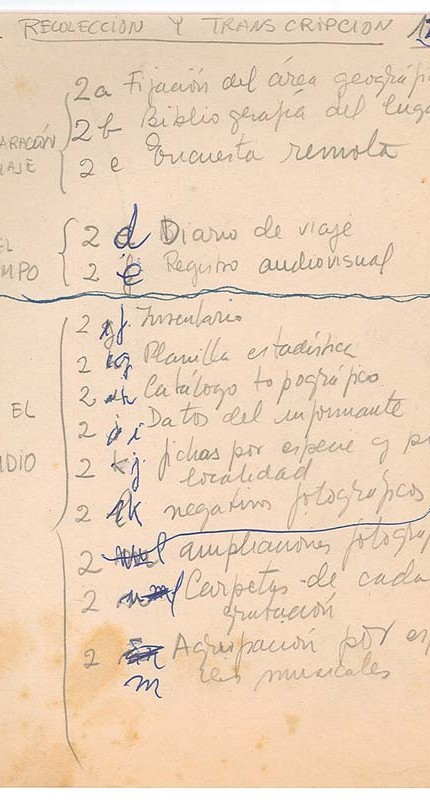 RECOLECCION Y TRANSCRIPCION
2a Fijación del área geográfi
2b Bibliografía del luga
ARACIÓN
IAJE
2c Encuesta remota
2 d Diario de viaje
EL
2 e Registro audiovisual
MPO
2 f Inventario
2 g Planilla estadística
2 h Catálogo topográfico
EL
2 i Datos del informante
DIO
2 j fichas por especie y p
localidad
2 k negativos fotográficos
2 l ampliaciones fotogra
2 l Carpetas de cada
grabación
2 m Agrupación por es
cies musicales